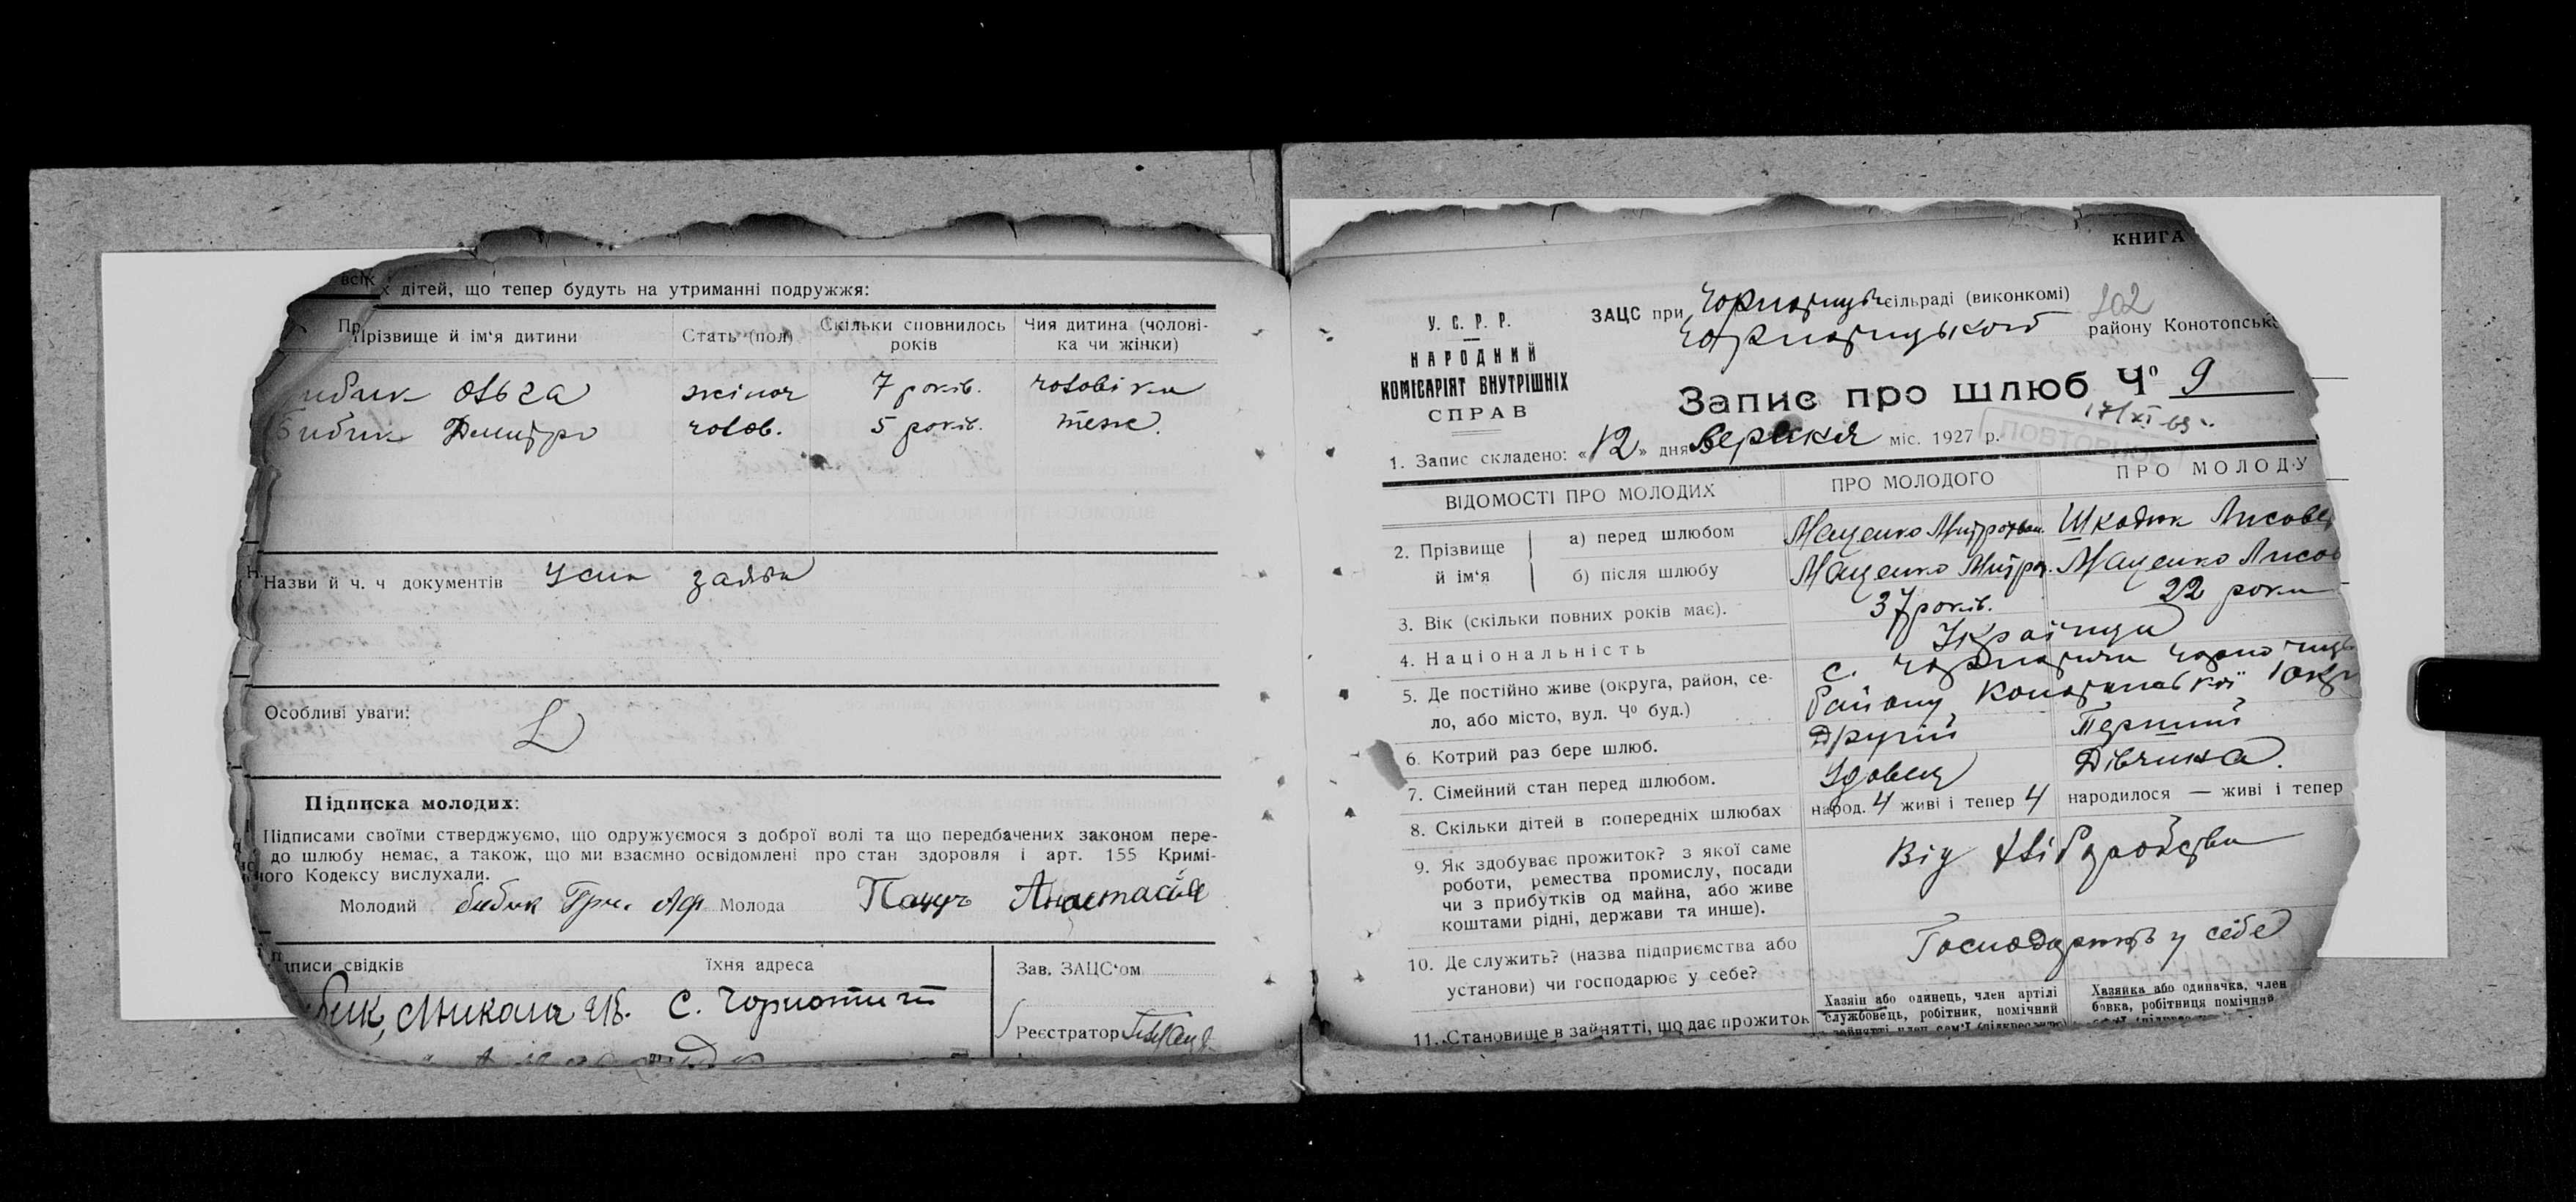 всіх дітей, що тепер будуть на утриманні подружжя:
Прізвище й ім‘я дитини
Стать (пол)
Скільки сповнилось років
Чия дитина (чолові-
ка чи жінки)
ибик Ольга жіноч 7 років. чоловіка
Бибик Дмитро чолов. 5 років. теж.
Назви й ч. ч документів Усна заява
Особливі уваги:
Підписка молодих:
Підписами своїми стверджуємо, що одружуємося з доброї волі та що передбачених законом пере-
до шлюбу немає, а також, що ми взаємно освідомлені про стан здоровля і арт. 155 Кримі-
ного Кодексу вислухали.
Молодий бибик Гри. Аф Молода Пацуь Анастасія
писи свідків
їхня адреса
Зав. ЗАЦС‘ом
бик, Микола Ів. С. Чорнотичі
Реєстратор
КНИГА
У. С. Р. Р.
НАРОДНИЙ
КОМІСАРІЯТ ВНУТРІШНІХ
СПРАВ
ЗАЦС при Чорнотицьк сільраді (виконкомі)
102
Чорнотицького району Конотопськ
Запис про шлюб Ч⁰ 9
17/XI-63 г.
ПОВТОРНОЕ
1. Запис складено: «12» дня Вересня міс. 1927 р.
ВІДОМОСТІ ПРО МОЛОДИХ
ПРО МОЛОДОГО
ПРО МОЛОДУ
2. Прізвище й ім‘я
а) перед шлюбом Маценко Митрофан. Шкодюк Лисове
б) після шлюбу Маценко Митро. Маценко Лисов
3. Вік (скільки повних років має). 37 років. 22 роки
4. Національність Українци
5. Де постійно живе (округа, район, се-
ло, або місто, вул. Ч⁰ буд.)
с. Чорнотичи Чорнотицьк
району Конотопської окр
6. Котрий раз бере шлюб. Другій Перший
7. Сімейний стан перед шлюбом. Удовец Дівчина.
8. Скільки дітей в попередніх шлюбах народ. 4 живі і тепер 4 народилося — живі і тепер
9. Як здобуває прожиток? з якої саме
роботи, ремества промислу, посади
чи з прибутків од майна, або живе
коштами рідні, держави та инше).
Від хліборобства
10. Де служить? (назва підприємства або
установи) чи господарює у себе?
Господарюють у себе
11. Становище в зайнятті, що дає прожиток
Хазяін або одинець, член артілі
службовець, робітник, помічний
в зайнятті член сем‘ї (підкреслити)
Хазяйка або одиначка, член
бовка, робітниця помічний